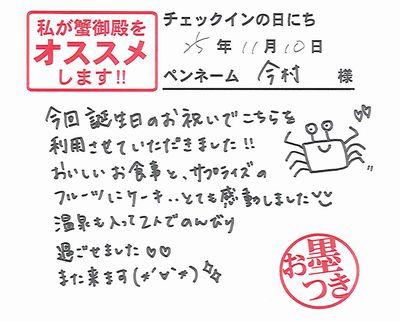 私が蟹御殿を
オススメ
します!!
チェックインの日にち
25年 11月 10日
ペンネーム 今村 様
今回誕生日のお祝いでこちらを
利用させていただきました!!
おいしいお食事と、サプライズの
フルーツにケーキ..とても感動しました
温泉も入って2人でのんびり
過ごせました♡♡
また来ます(*'∀'*)
お墨つき